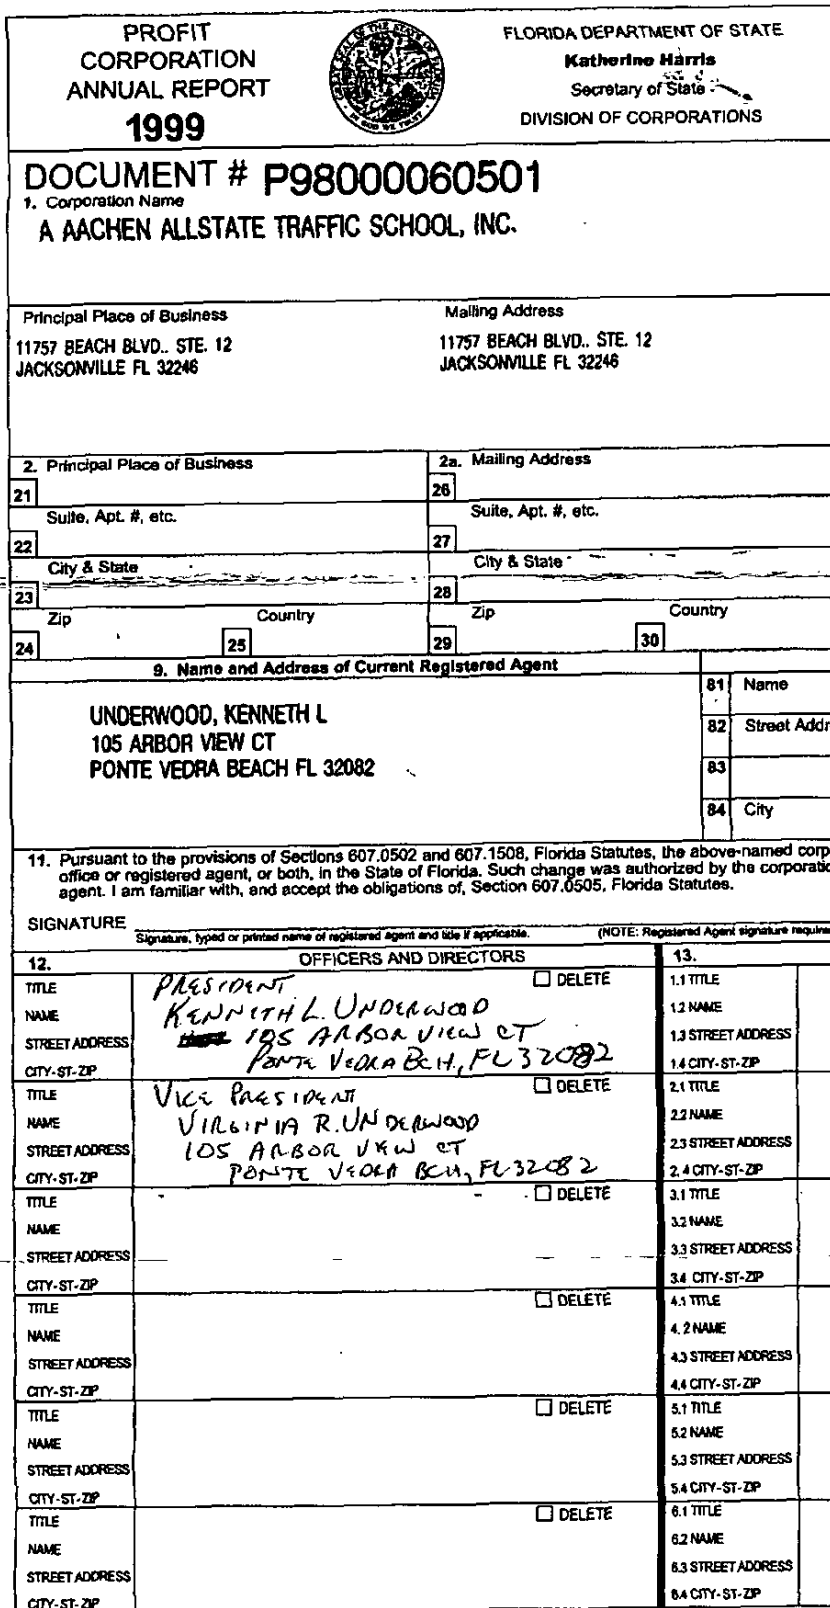 PROFIT
CORPORATION
ANNUAL REPORT
1999
FLORIDA DEPARTMENT OF STATE
Katherine Harris
Secretary of State
DIVISION OF CORPORATIONS
DOCUMENT # P98000060501
1. Corporation Name
A AACHEN ALLSTATE TRAFFIC SCHOOL, INC.
Principal Place of Business
11757 BEACH BLVD.. STE. 12
JACKSONVILLE FL 32246
Mailing Address
11757 BEACH BLVD.. STE. 12
JACKSONVILLE FL 32246
2. Principal Place of Business
21
Suite, Apt. #, etc.
22
City & State
23
Zip
Country
24
25
2a. Mailing Address
26
Suite, Apt. #, etc.
27
City & State
28
Zip
Country
29
30
9. Name and Address of Current Registered Agent
UNDERWOOD, KENNETH L
105 ARBOR VIEW CT
PONTE VEDRA BEACH FL 32082
81 Name
82 Street Addr
83
84 City
11. Pursuant to the provisions of Sections 607.0502 and 607.1508, Florida Statutes, the above-named corp
office or registered agent, or both, in the State of Florida. Such change was authorized by the corporatio
agent. I am familiar with, and accept the obligations of, Section 607.0505, Florida Statutes.
SIGNATURE
Signature, typed or printed name of registered agent and title if applicable.
(NOTE: Registered Agent signature require
12. OFFICERS AND DIRECTORS
13.
TITLE PRESIDENT DELETE
NAME KENNETH L. UNDERWOOD
STREET ADDRESS 105 ARBOR VIEW CT
CITY-ST-ZIP PONTE VEDRA BCH, FL 32082
1.1 TITLE
1.2 NAME
1.3 STREET ADDRESS
1.4 CITY-ST-ZIP
TITLE VICE PRESIDENT DELETE
NAME VIRGINIA R. UNDERWOOD
STREET ADDRESS 105 ARBOR VIEW CT
CITY-ST-ZIP PONTE VEDRA BCH, FL 32082
2.1 TITLE
2.2 NAME
2.3 STREET ADDRESS
2.4 CITY-ST-ZIP
TITLE DELETE
NAME
STREET ADDRESS
CITY-ST-ZIP
3.1 TITLE
3.2 NAME
3.3 STREET ADDRESS
3.4 CITY-ST-ZIP
TITLE DELETE
NAME
STREET ADDRESS
CITY-ST-ZIP
4.1 TITLE
4.2 NAME
4.3 STREET ADDRESS
4.4 CITY-ST-ZIP
TITLE DELETE
NAME
STREET ADDRESS
CITY-ST-ZIP
5.1 TITLE
5.2 NAME
5.3 STREET ADDRESS
5.4 CITY-ST-ZIP
TITLE DELETE
NAME
STREET ADDRESS
CITY-ST-ZIP
6.1 TITLE
6.2 NAME
6.3 STREET ADDRESS
6.4 CITY-ST-ZIP